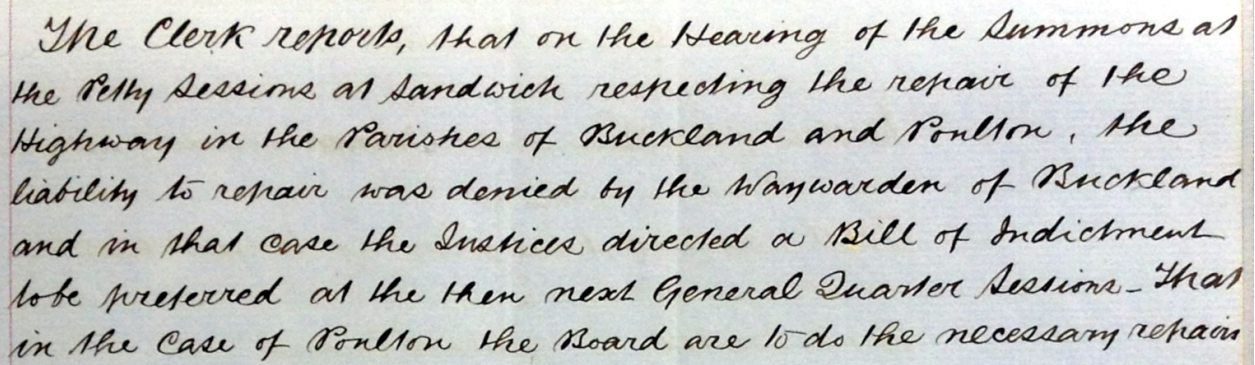 The Clerk reports, that on the Hearing of the Summons at
the Petty Sessions at Sandwich respecting the repair of the
Highway in the Parishes of Buckland and Poulton, the
liability to repair was denied by the Waywarden of Buckland
and in that case the Justices directed a Bill of Indictment
to be preferred at the then next General Quarter Sessions - That
in the Case of Poulton the Board are to do the necessary repairs